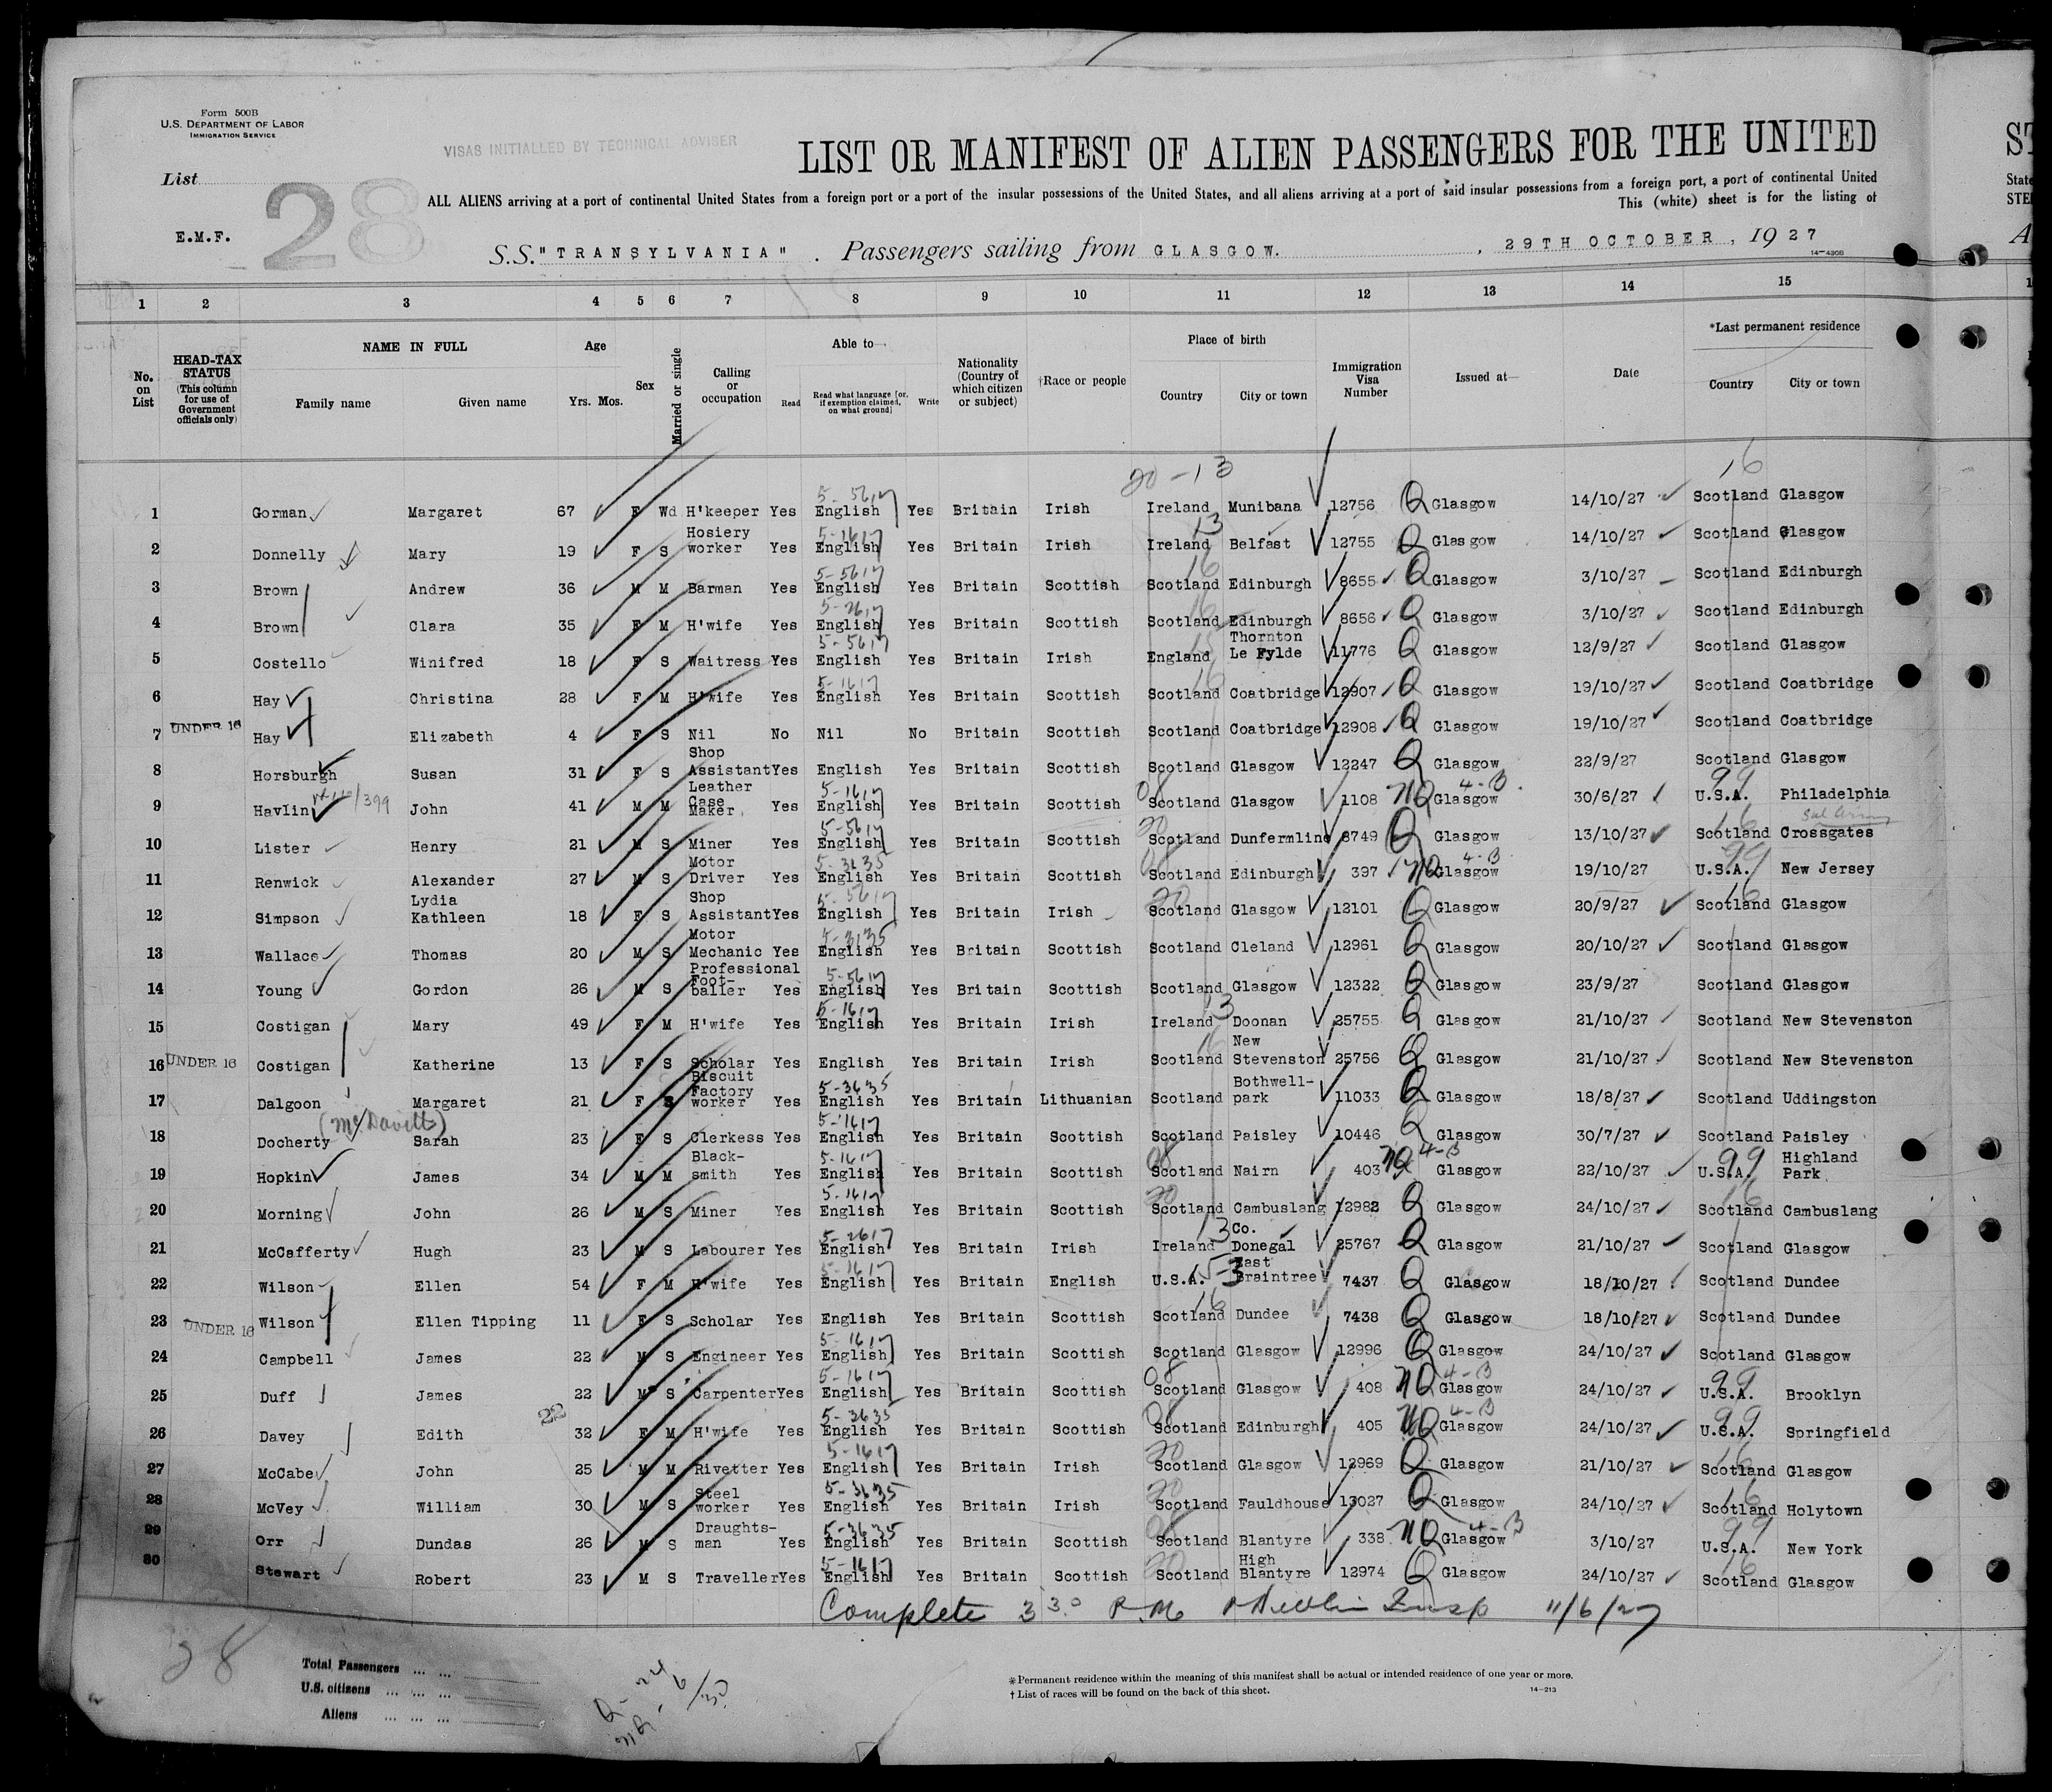 Form 500B
U.S. DEPARTMENT OF LABOR
IMMIGRATION SERVICE
VISAS INITIALLED BY TECHNICAL ADVISER
LIST OR MANIFEST OF ALIEN PASSENGERS FOR THE UNITED
List 28
ALL ALIENS arriving at a port of continental United States from a foreign port or a port of the insular possessions of the United States, and all aliens arriving at a port of said insular possessions from a foreign port, a port of continental United
This (white) sheet is for the listing of
E.M.F.
S.S. "TRANSYLVANIA" . Passengers sailing from GLASGOW. , 29TH OCTOBER , 19 27
14—430B
1 2 3 4 5 6 7 8 9 10 11 12 13 14 15
No. on List
HEAD-TAX STATUS (This column for use of Government officials only)
NAME IN FULL Family name Given name
Age Yrs. Mos.
Sex
Married or single
Calling or occupation
Able to— Read Read what language [or, if exemption claimed, on what ground] Write
Nationality (Country of which citizen or subject)
†Race or people
Place of birth Country City or town
Immigration Visa Number
Issued at—
Date
*Last permanent residence Country City or town
20-13 16
1 Gorman Margaret 67 F Wd H'keeper Yes 5-5617 English Yes Britain Irish Ireland Munibana 12756 Q Glasgow 14/10/27 Scotland Glasgow
2 Donnelly Mary 19 F S Hosiery worker Yes 5-1617 English Yes Britain Irish 13 Ireland Belfast 12755 Q Glasgow 14/10/27 Scotland Glasgow
3 Brown Andrew 36 M M Barman Yes 5-5617 English Yes Britain Scottish 16 Scotland Edinburgh 8655 Q Glasgow 3/10/27 Scotland Edinburgh
4 Brown Clara 35 F M H'wife Yes 5-2617 English Yes Britain Scottish 16 Scotland Edinburgh 8656 Q Glasgow 3/10/27 Scotland Edinburgh
5 Costello Winifred 18 F S Waitress Yes 5-5617 English Yes Britain Irish England Thornton Le Fylde 11776 Q Glasgow 12/9/27 Scotland Glasgow
6 Hay Christina 28 F M H'wife Yes 5-1617 English Yes Britain Scottish 16 Scotland Coatbridge 12907 Q Glasgow 19/10/27 Scotland Coatbridge
7 UNDER 16 Hay Elizabeth 4 F S Nil No Nil No Britain Scottish Scotland Coatbridge 12908 Q Glasgow 19/10/27 Scotland Coatbridge
8 Horsburgh Susan 31 F S Shop Assistant Yes English Yes Britain Scottish Scotland Glasgow 12247 Q Glasgow 22/9/27 Scotland Glasgow
9 Havlin John 41 M M Leather Case Maker, Yes 5-1617 English Yes Britain Scottish 08 Scotland Glasgow 1108 NQ 4-B Glasgow 30/6/27 99 U.S.A. Philadelphia
10 Lister Henry 21 M S Miner Yes 5-5617 English Yes Britain Scottish 20 Scotland Dunfermline 8749 Q Glasgow 13/10/27 16 Scotland Crossgates
11 Renwick Alexander 27 M S Motor Driver Yes 5-3635 English Yes Britain Scottish 08 Scotland Edinburgh 397 NQ 4-B Glasgow 19/10/27 99 U.S.A. New Jersey
12 Simpson Lydia Kathleen 18 F S Shop Assistant Yes 5-5617 English Yes Britain Irish 20 Scotland Glasgow 12101 Q Glasgow 20/9/27 16 Scotland Glasgow
13 Wallace Thomas 20 M S Motor Mechanic Yes English Yes Britain Scottish Scotland Cleland 12961 Q Glasgow 20/10/27 Scotland Glasgow
14 Young Gordon 26 M S Professional Foot- baller Yes 5-5617 English Yes Britain Scottish Scotland Glasgow 12322 Q Glasgow 23/9/27 Scotland Glasgow
15 Costigan Mary 49 F M H'wife Yes 5-1617 English Yes Britain Irish 13 Ireland Doonan 25755 Q Glasgow 21/10/27 Scotland New Stevenston
16 UNDER 16 Costigan Katherine 13 F S Scholar Yes English Yes Britain Irish 16 Scotland New Stevenston 25756 Q Glasgow 21/10/27 Scotland New Stevenston
17 Dalgoon Margaret 21 F S Biscuit Factory worker Yes 5-3635 English Yes Britain Lithuanian Scotland Bothwell- park 11033 Q Glasgow 18/8/27 Scotland Uddingston
(McDavitt)
18 Docherty Sarah 23 F S Clerkess Yes 5-1617 English Yes Britain Scottish Scotland Paisley 10446 Q Glasgow 30/7/27 Scotland Paisley
19 Hopkin James 34 M M Black- smith Yes 5-1617 English Yes Britain Scottish 08 Scotland Nairn 403 NQ 4-B Glasgow 22/10/27 99 U.S.A. Highland Park
20 Morning John 26 M S Miner Yes 5-1617 English Yes Britain Scottish 20 Scotland Cambuslang 12982 Q Glasgow 24/10/27 16 Scotland Cambuslang
21 McCafferty Hugh 23 M S Labourer Yes 5-2617 English Yes Britain Irish 13 Ireland Co. Donegal 25767 Q Glasgow 21/10/27 Scotland Glasgow
22 Wilson Ellen 54 F M H'wife Yes 5-1617 English Yes Britain English U.S.A. East Braintree 7437 Q Glasgow 18/10/27 Scotland Dundee
23 UNDER 16 Wilson Ellen Tipping 11 F S Scholar Yes English Yes Britain Scottish 16 Scotland Dundee 7438 Q Glasgow 18/10/27 Scotland Dundee
24 Campbell James 22 M S Engineer Yes 5-1617 English Yes Britain Scottish Scotland Glasgow 12996 Q Glasgow 24/10/27 Scotland Glasgow
25 Duff James 22 M S Carpenter Yes 5-1617 English Yes Britain Scottish 08 Scotland Glasgow 408 NQ 4-B Glasgow 24/10/27 99 U.S.A. Brooklyn
22
26 Davey Edith 32 F M H'wife Yes 5-3635 English Yes Britain Scottish 08 Scotland Edinburgh 405 NQ 4-B Glasgow 24/10/27 99 U.S.A. Springfield
27 McCabe John 25 M M Rivetter Yes 5-1617 English Yes Britain Irish 20 Scotland Glasgow 12969 Q Glasgow 21/10/27 16 Scotland Glasgow
28 McVey William 30 M S Steel worker Yes 5-3635 English Yes Britain Irish 20 Scotland Fauldhouse 13027 Q Glasgow 24/10/27 16 Scotland Holytown
29 Orr Dundas 26 M S Draughts- man Yes 5-3635 English Yes Britain Scottish 08 Scotland Blantyre 338 NQ 4-B Glasgow 3/10/27 99 U.S.A. New York
30 Stewart Robert 23 M S Traveller Yes 5-1617 English Yes Britain Scottish 20 Scotland High Blantyre 12974 Q Glasgow 24/10/27 16 Scotland Glasgow
Complete 3 30 P.M. Insp 11/6/27
28
Total Passengers ... ...
U.S. citizens ... ... ...
Aliens ... ... ...
Q-24
NQ-6/30
*Permanent residence within the meaning of this manifest shall be actual or intended residence of one year or more.
† List of races will be found on the back of this sheet.
14—213